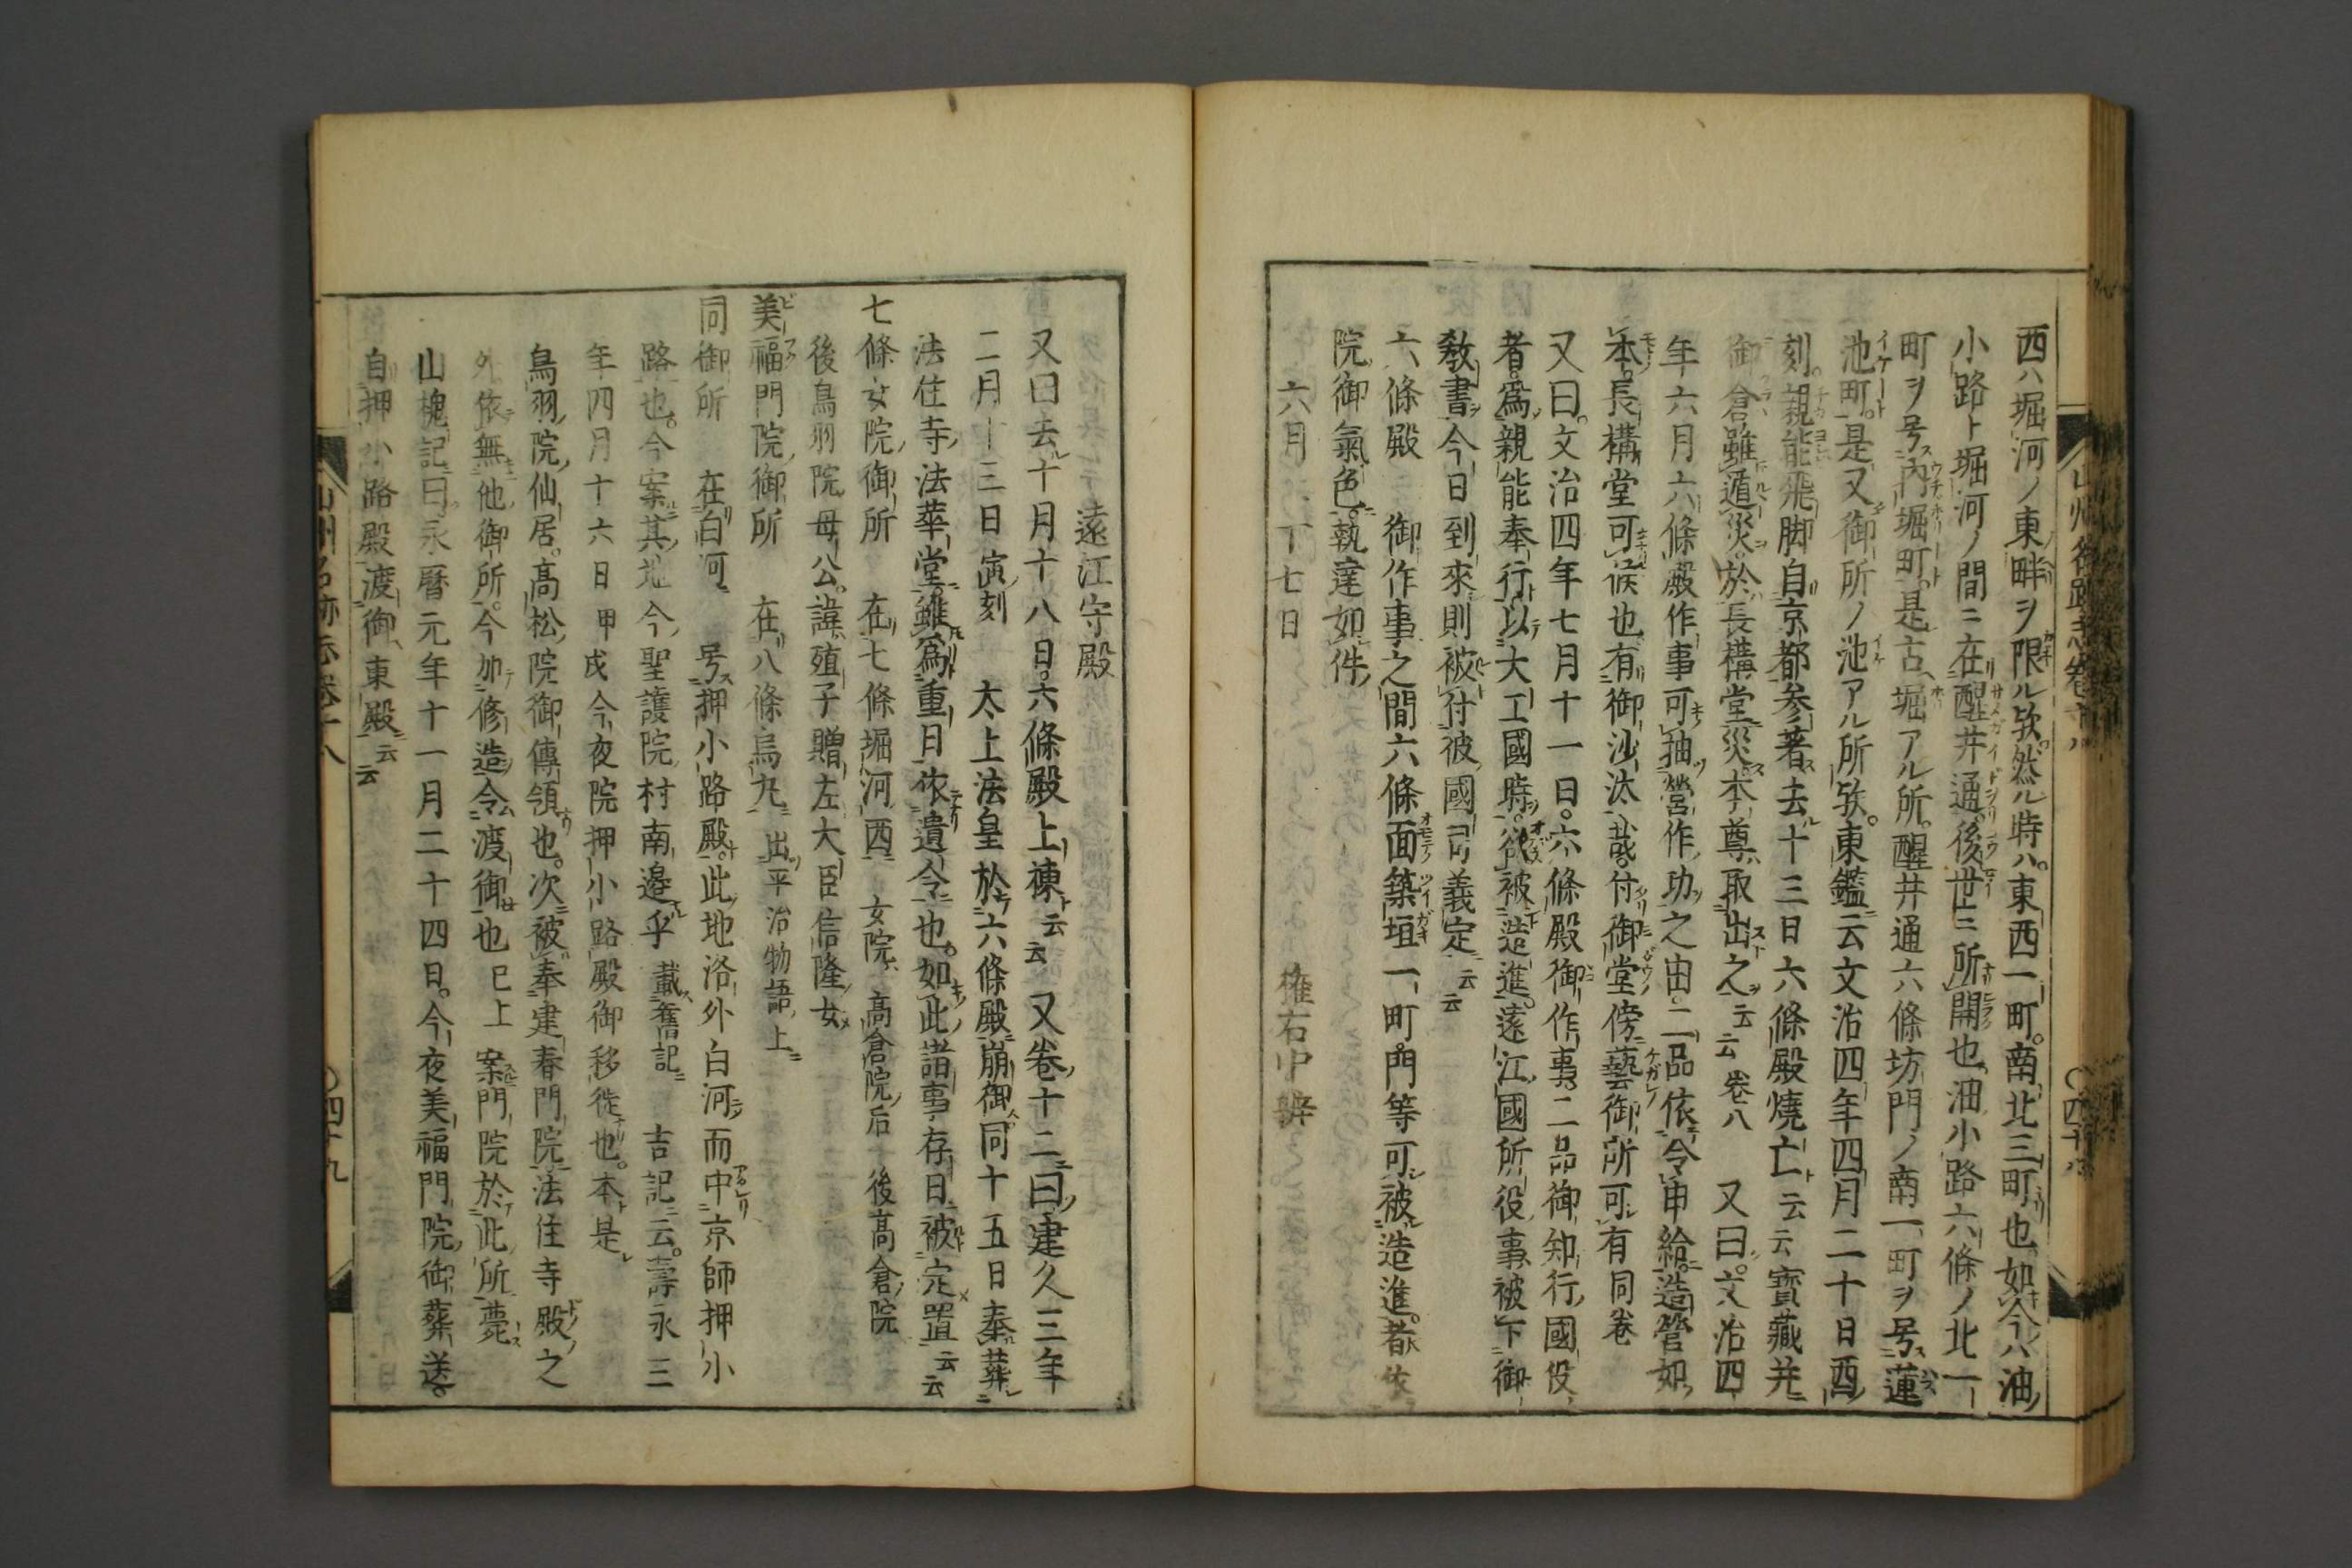 西ハ堀河ノ東畔ヲ限ル欤然ル時ハ。東西一町。南北三町也如今ハ油
小路ト堀河ノ間ニ在醒井通。後世三所開也油小路六條ノ北一
町ヲ号内堀町。是古堀アル所。醒井通六條坊門ノ南一町ヲ号蓮
池町。是又御所ノ池アル所欤。東鑑云文治四年四月二十日酉
刻。親能飛脚自京都参著去十三日六條殿燒亡云云寶藏并
御倉雖遁災。於長構堂災本尊取出之云云卷八　又曰。文治四
年六月六條殿作事可抽營作功之由。二品依令申給。造營如
本。長構堂可候也有御沙汰哉。付御堂傍藝御所可有同卷
又曰。文治四年七月十一日。六條殿御作事二品御知行國役
者。爲親能奉行以大工國時。欲被造進。遠江國所役事被下御
教書今日到來則被付彼國司義定云云
六條殿　御作事之間六條面築垣一町門等可被造進。者依
院御氣色。執達如件
六月　丁七日　權右中辨
遠江守殿
又曰去十月十八日。六條殿上棟云云　又卷十二曰建久三年
二月十三日寅刻　太上法皇於六條殿崩御同十五日奉葬
法住寺法華堂。雖爲重日依遺令也。如此諸事存日被定置云云
七條女院御所　在七條堀河西　女院　高倉院后　後高倉院
後鳥羽院母公。諱殖子贈左大臣信隆女
美福門院御所　在八條烏丸出平治物語上
同御所　在白河　号押小路殿。此地洛外白河而中京師押小
路也。今案其北今聖護院村南邊乎載舊記　吉記云。壽永三
年四月十六日甲戌今夜院押小路殿御移徙也。本是
鳥羽院仙居。高松院御傳領也。次被奉建春門院法住寺殿之
外依無他御所。今加修造令渡御也已上　案門院於此所薨
山槐記曰永曆元年十一月二十四日。今夜美福門院御葬送。
自押小路殿渡御東殿云云
山州名跡志卷十八　〇四十九